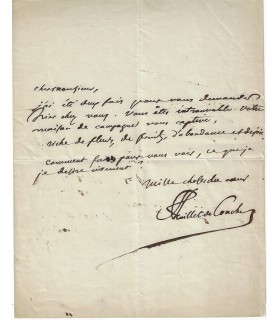 cher monsieur,
j'ai été deux fois pour vous demander
chez vous. Vous êtes introuvable. Votre
maison de campagne vous captive,
riche de fleurs, de fruits, d'abondance et
comment faire pour vous voir, ce que je
je désire vivement
mille choses du cœur
Feuillet de Conches